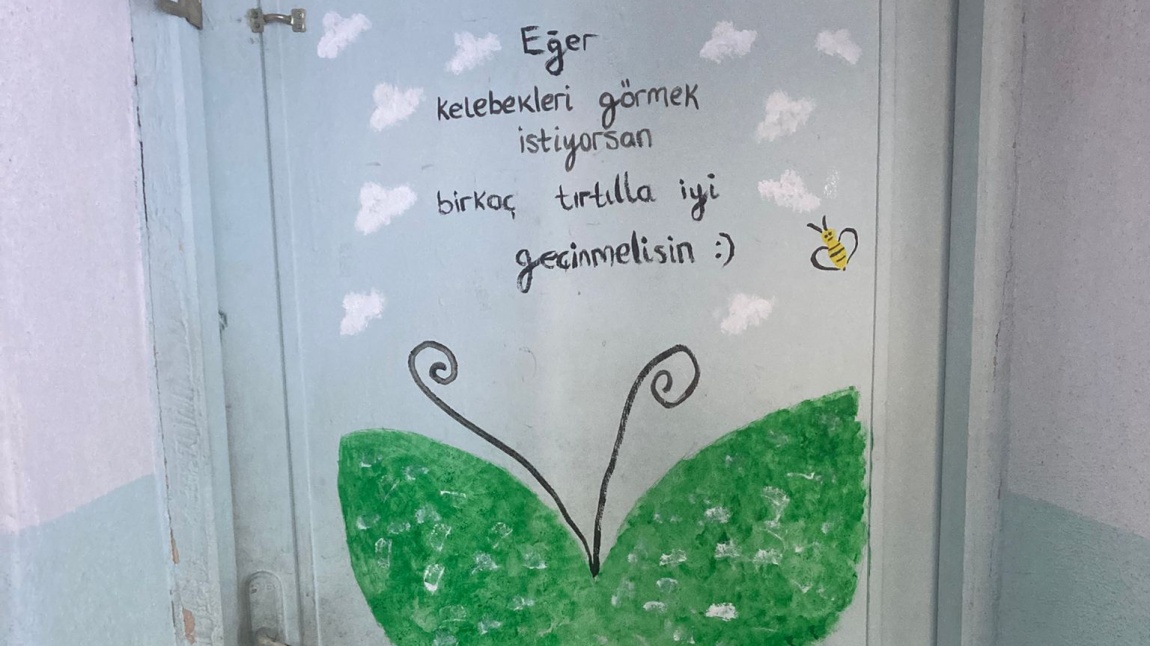 Eğer
kelebekleri görmek
istiyorsan
birkaç tırtılla iyi
geçinmelisin :)